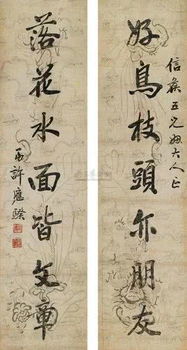 好鳥枝頭亦朋友
信矦五兄姻大人正
落花水面皆文章
弟許應騤